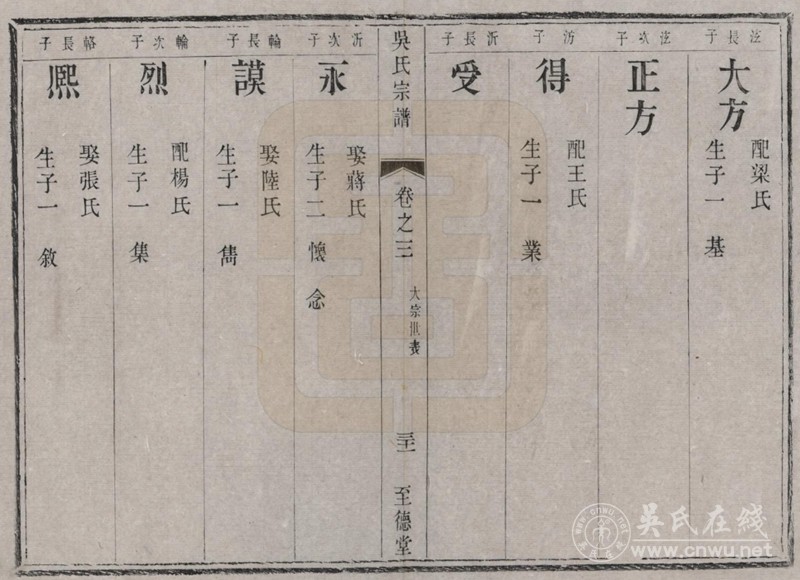 泫長子
大方
配梁氏
生子一 基
泫次子
正方
汸子
得
配王氏
生子一 業
沂長子
受
吳氏宗譜
卷之三
大宗世表
三十一
至德堂
沂次子
永
娶蔣氏
生子二 懷 念
輪長子
謨
娶陸氏
生子一 雋
輪次子
烈
配楊氏
生子一 集
輅長子
熈
娶張氏
生子一 敘
吴氏在线
www.cnwu.net